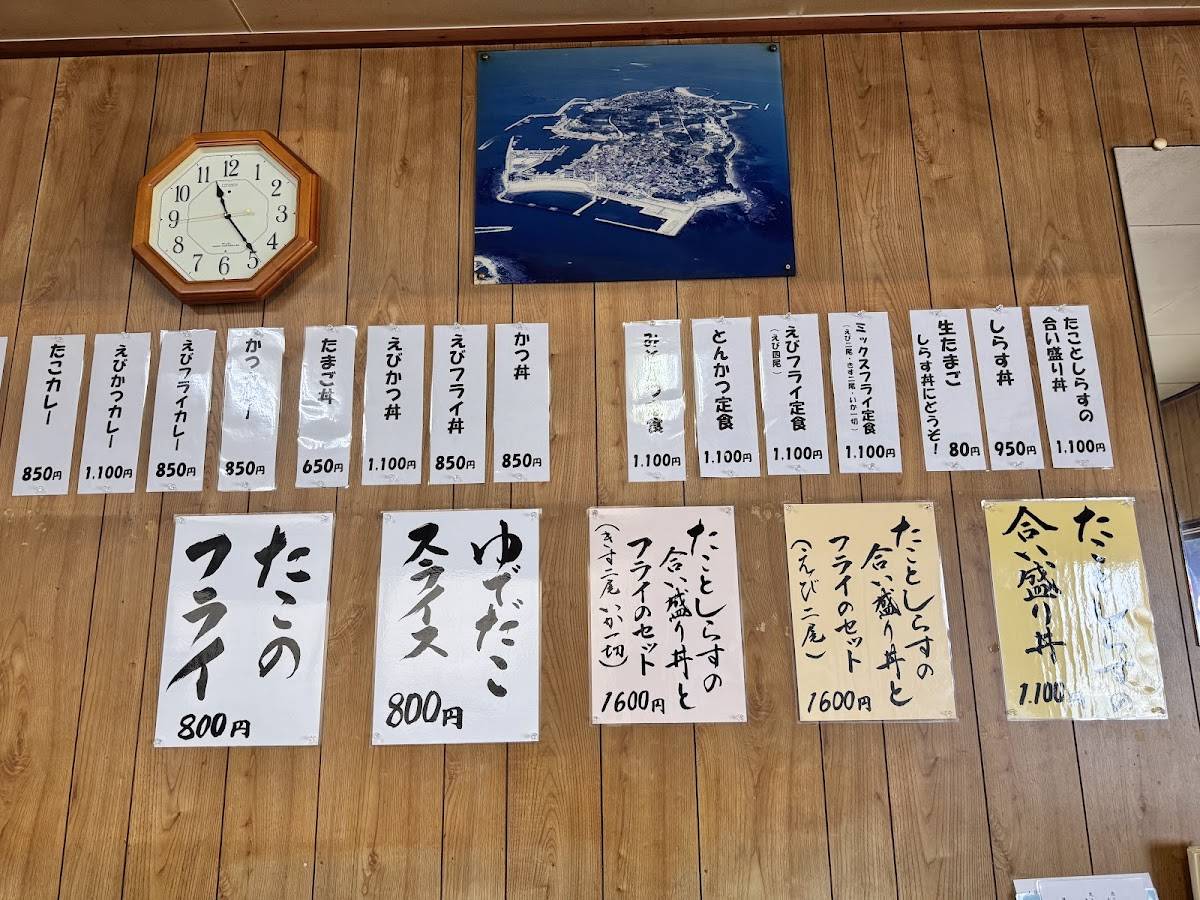 11 12 1
10 2
9 3
8 4
7 6 5
たことしらすの
合い盛り丼
1,100円
しらす丼
950円
生たまご
しらす丼にどうぞ!
80円
ミックスフライ定食
(えび二尾・きす二尾・いか一切)
1,100円
えびフライ定食
(えび四尾)
1,100円
とんかつ定食
1,100円
1,100円
かつ丼
850円
えびフライ丼
850円
えびかつ丼
1,100円
たまご丼
650円
850円
えびフライカレー
850円
えびかつカレー
1,100円
たこカレー
850円
たことしらすの
合い盛り丼
1,100円
たことしらすの
合い盛り丼と
フライのセット
(えび二尾)
1600円
たことしらすの
合い盛り丼と
フライのセット
(きす二尾いか一切)
1600円
ゆでだこ
スライス
800円
たこの
フライ
800円